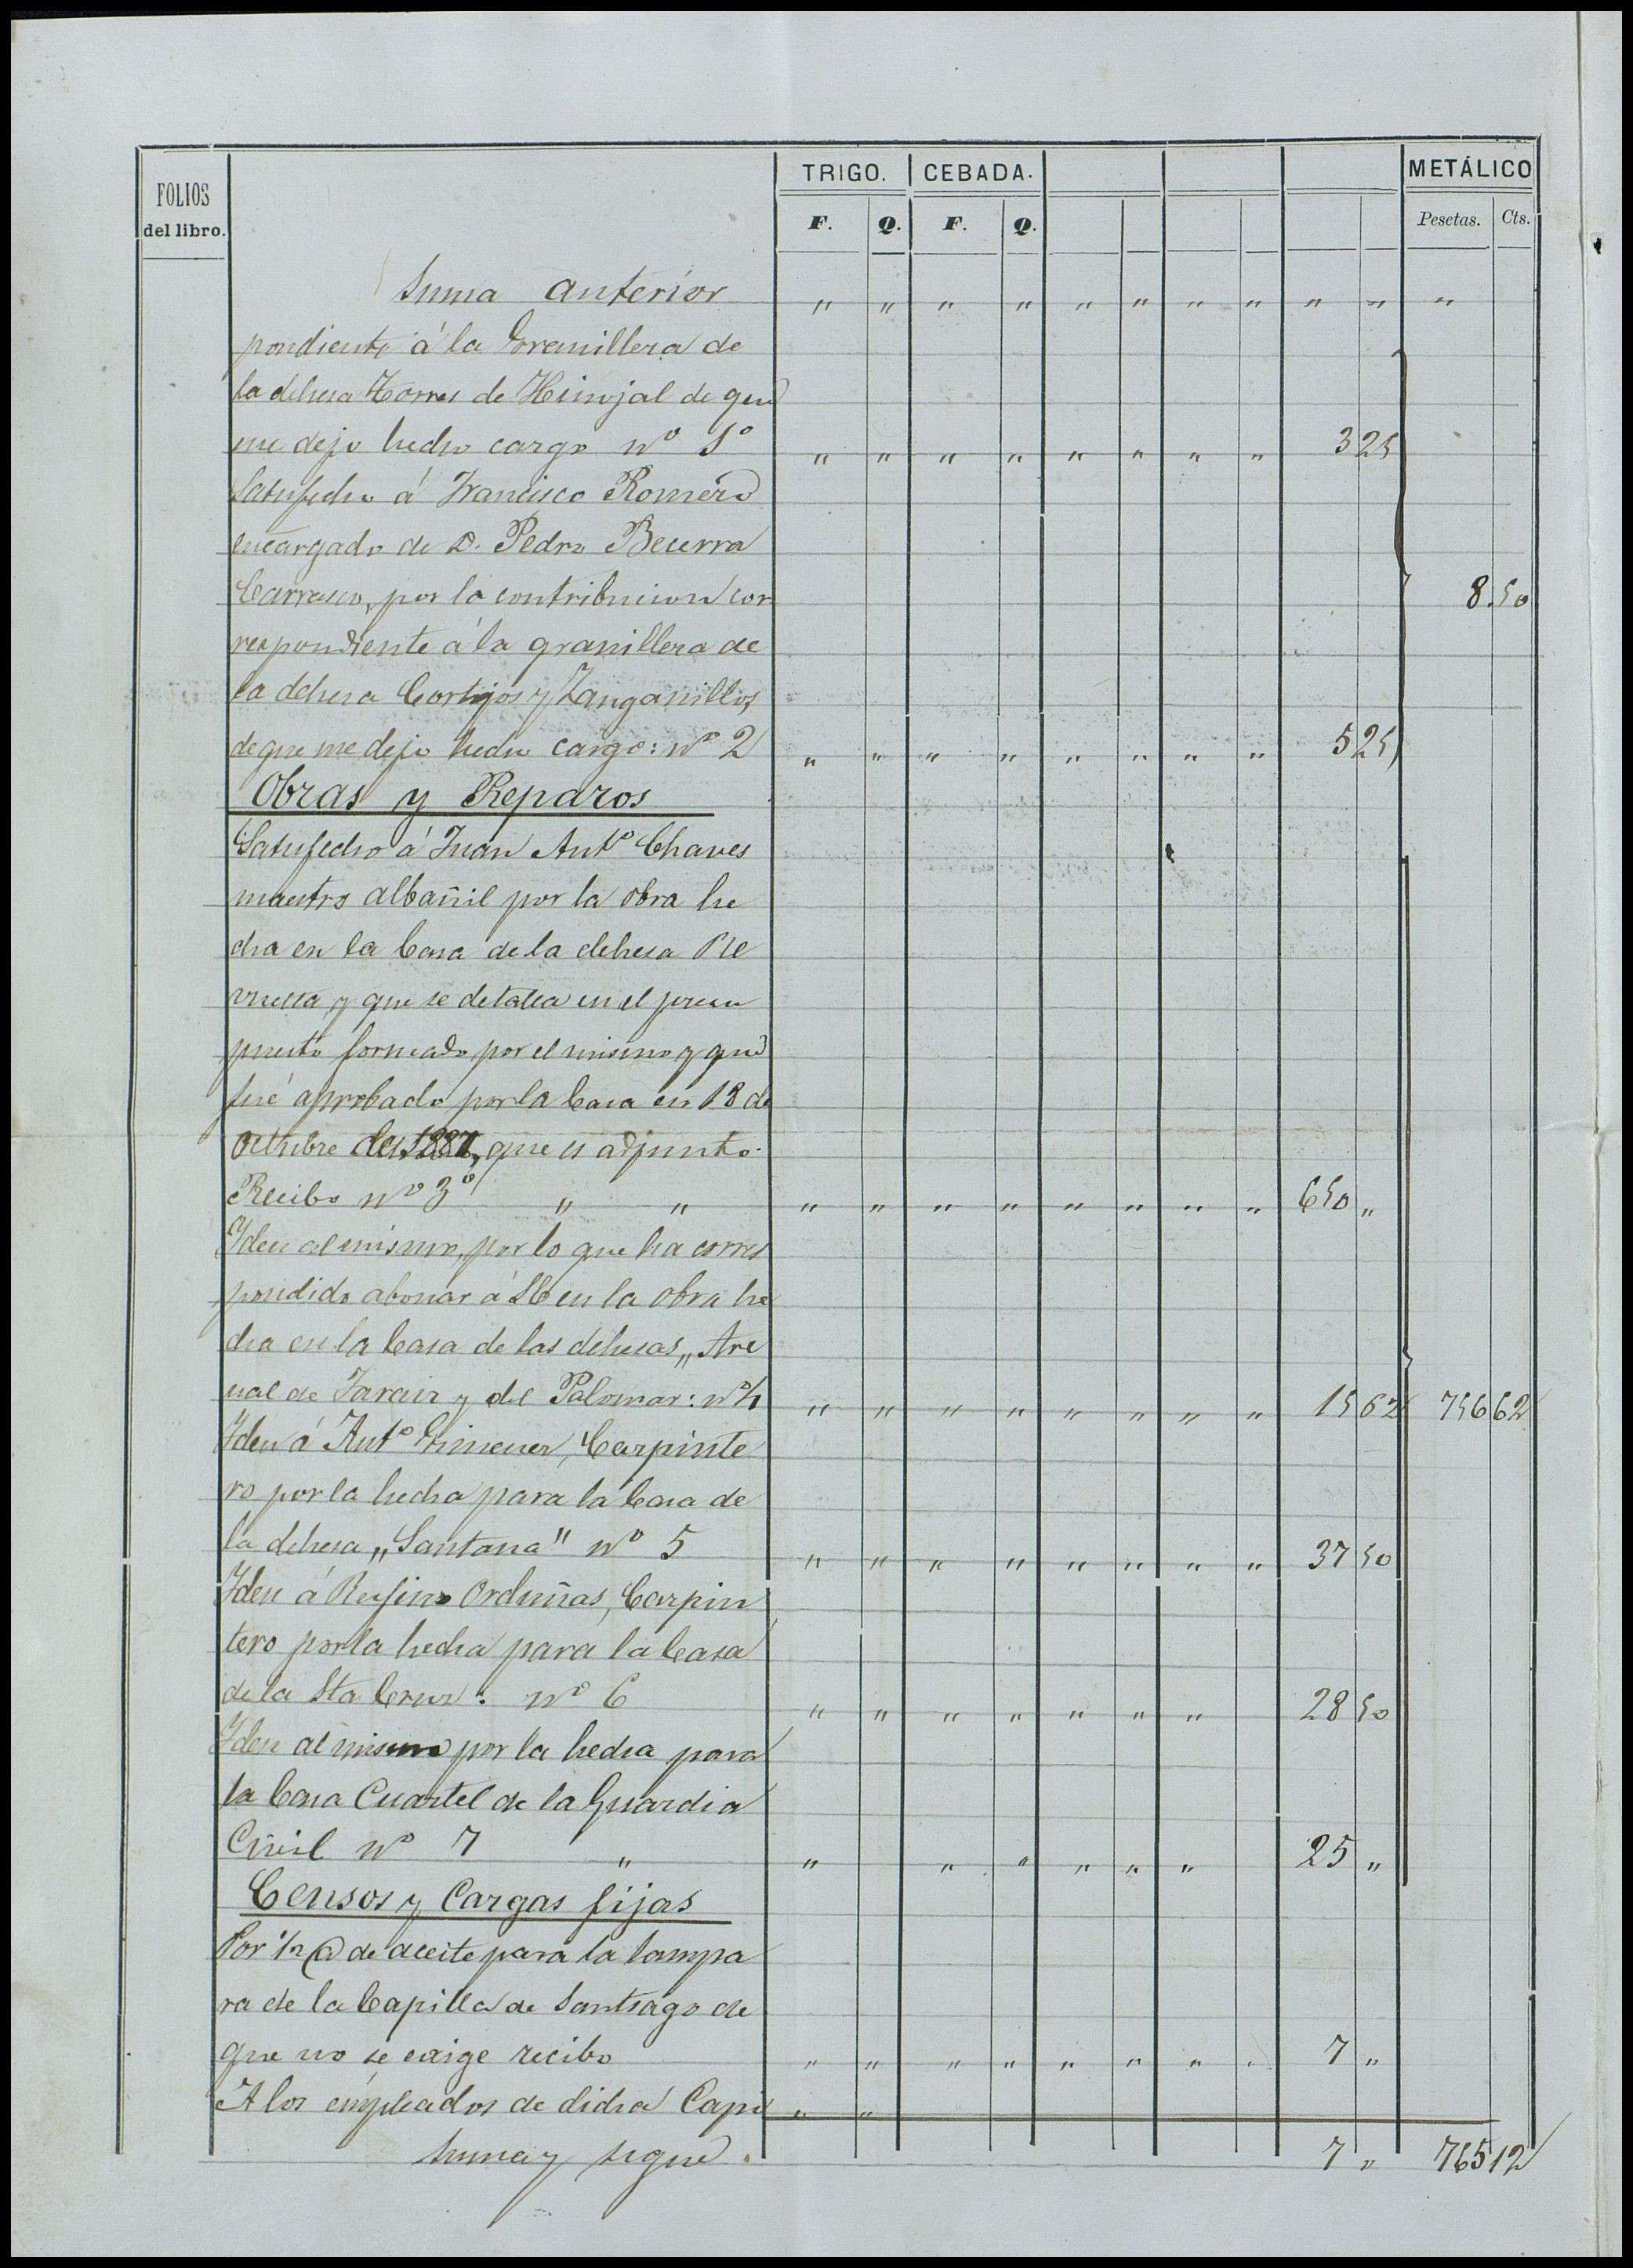 FOLIOS del libro. TRIGO. CEBADA. METÁLICO
F. Q. F. Q. Pesetas. Cts.
Suma anterior " " " " " " " " " " "
pondiente á la Granillera de
la dehesa Torres de Hinojal de que
me dejo hecho cargo nº 1º " " " " " " " " 3 25
Satisfecho á Francisco Romero
encargado de D. Pedro Becerra
Carrasco, por la contribucion cor 8.50
respondiente á la granillera de
la dehesa Cortijos y Zanganillos,
de que me dejo hecho cargo: nº 2 " " " " " " " " 5 25
Obras y Reparos
Satisfecho á Juan Antº Chaves
maestro albañil por la obra he
cha en la Casa de la dehesa Re
vuelta y que se detalla en el presu
puesto formado por el mismo y que
fué aprobado por la Casa en 18 de
Octubre de 1887, que es adjunto.
Recibo nº 3º " " " " " " " " " " 650 "
Iden al mismo, por lo que ha corres
pondido abonar á SE en la obra he
cha en la Casa de las dehesas, "Are
nal de Jaraiz y del Palomar: nº 4 " " " " " " " " 15 62 756 62
Iden á Antº Gimenez, Carpinte
ro por la hecha para la Casa de
la dehesa "Santana" nº 5 " " " " " " " " 37 50
Iden á Rufino Orduñas, Carpin
tero por la hecha para la Casa
de la Sta Cruz: nº 6 " " " " " " " 28 50
Iden al mismo por la hecha para
la Casa Cuartel de la Guardia
Civil nº 7 " " " " " " " 25 "
Censos y Cargas fijas
Por 1/2 @ de aceite para la lampa
ra de la Capilla de Santiago de
que no se exige recibo " " " " " " " " 7 "
A los empleados de dicha Capi " "
Suma y sigue. 7 " 765 12